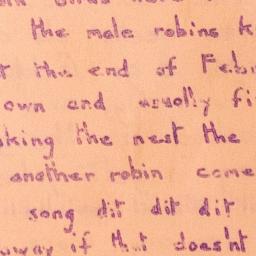 the male robins k
the end of Feb
own and usually fi
king the nest the
another robin come
song dit dit dit
away if that does'nt